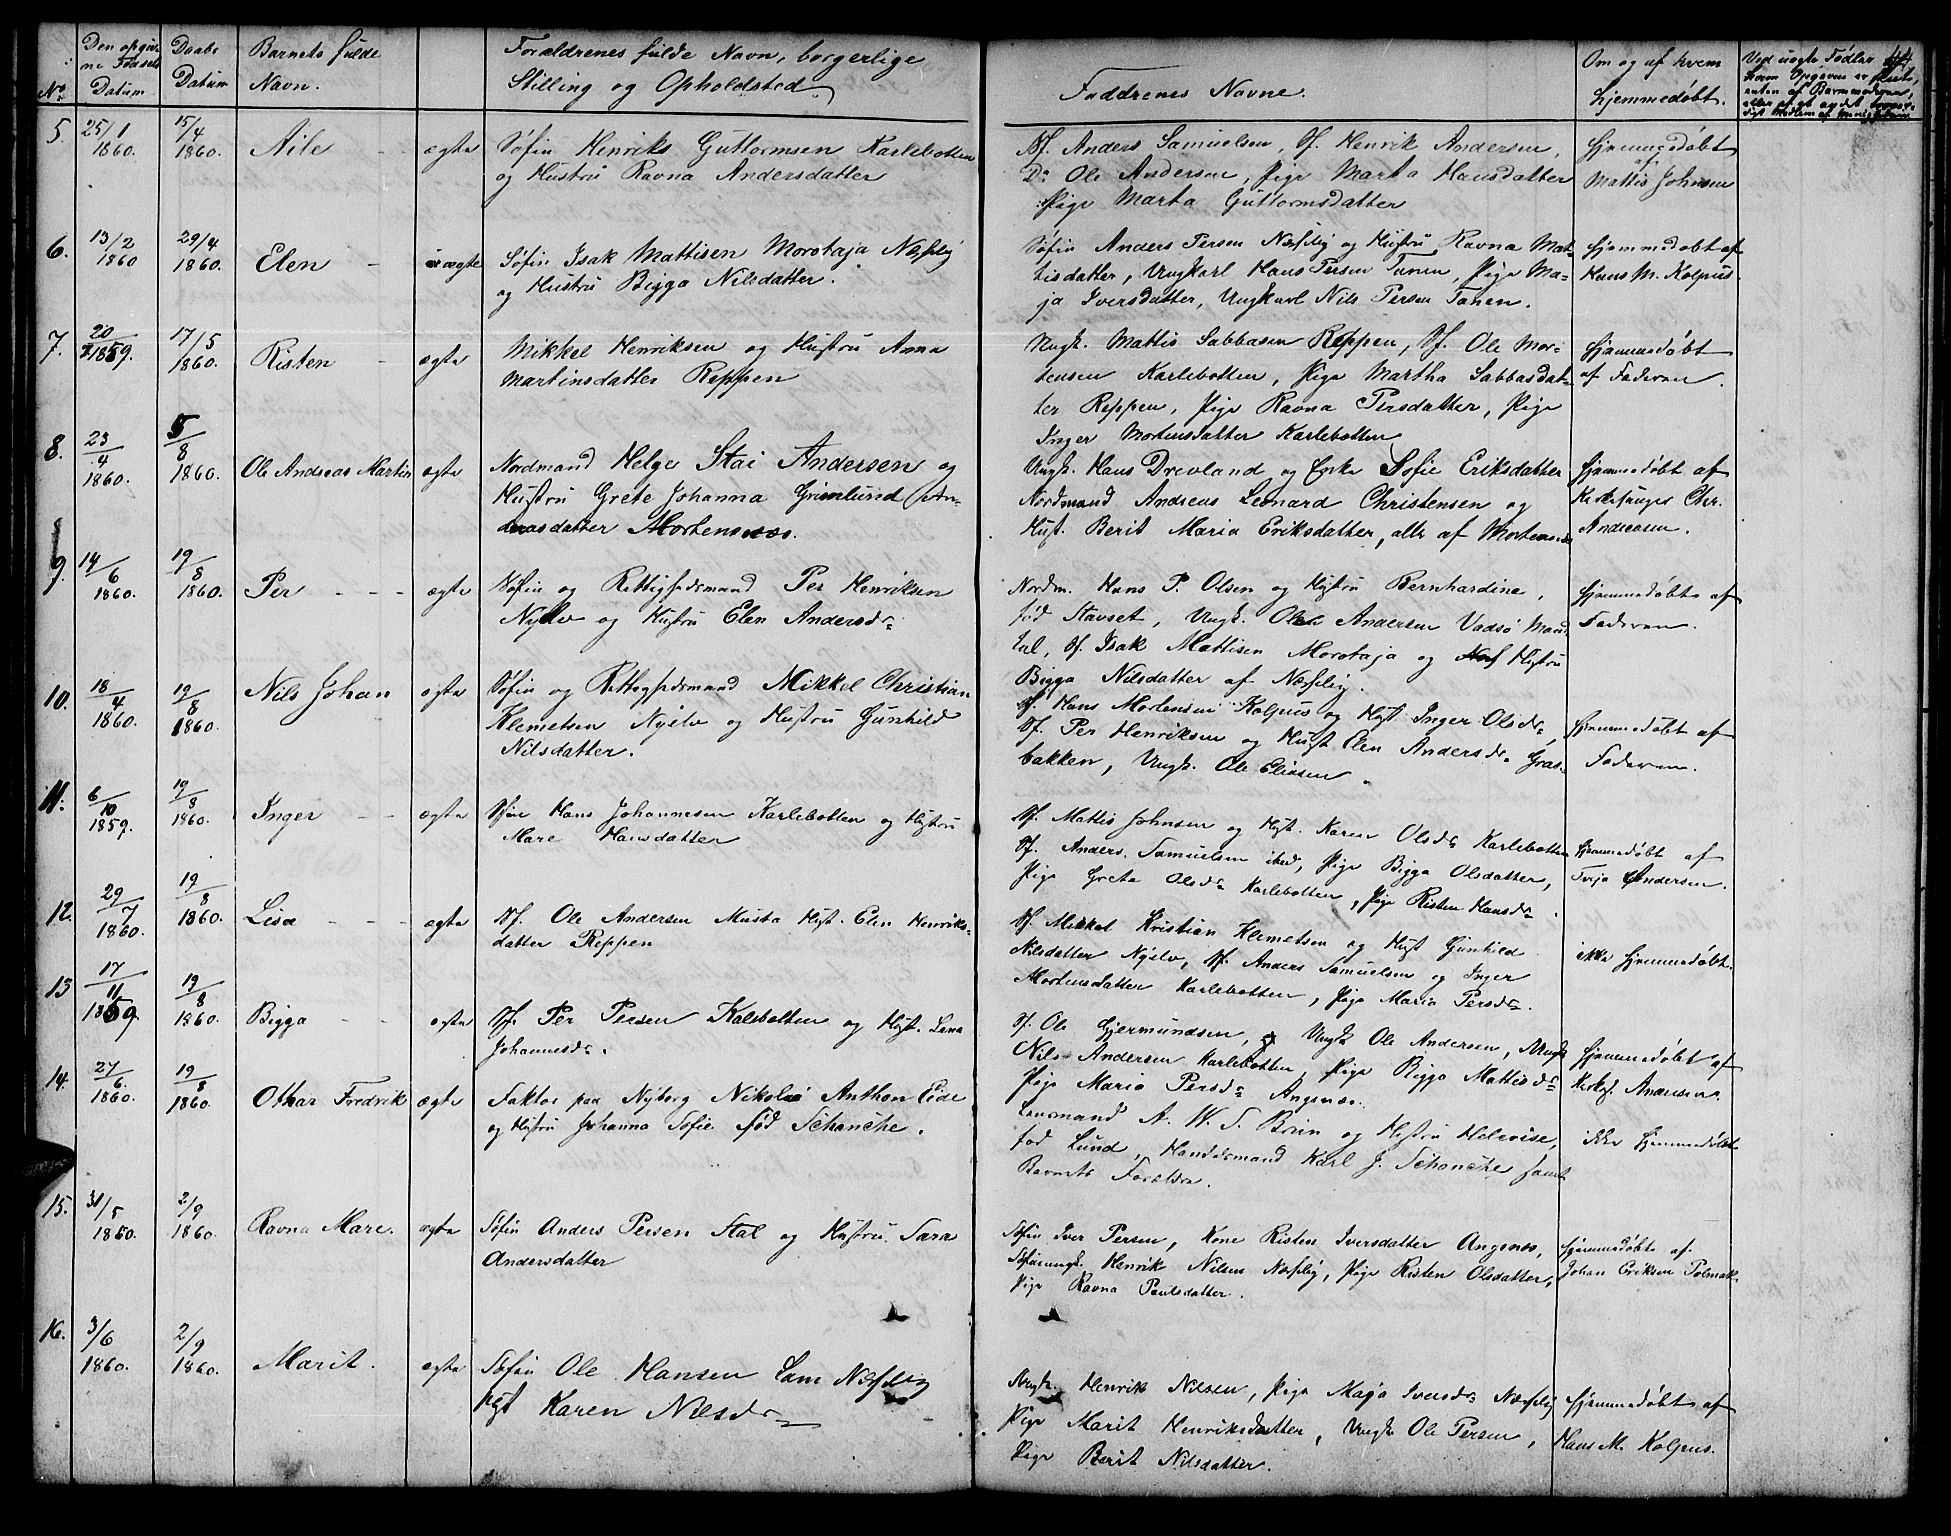 No
Den opgiv-
ne Fødsels
Datum
Daabs
Datum
Barnets fulde
Navn.
Forældrenes fulde Navn, borgerlige
Stilling og Opholdsted
Faddrenes Navne.
Om og af hvem
hjemmedøbt.
Ved uægte Fødsler
44
5.
25/1
1860.
15/4
1860.
Aile
ægte
Søfin Henriks Guttormsen Karlebotten
og Hustru Ravna Andersdatter
Sf. Anders Samuelsen, Sf. Henrik Andersen,
Do Ole Andersen, Pige Marta Hansdatter
Pige Marta Guttormsdatter
Hjemmedøbt
af
Mattis Johnsen
6.
13/2
1860
29/4
1860.
Elen
ægte
Søfin Isak Mattisen Morotaja Næsseby
og Hustru Bigga Nilsdatter.
Søfin Anders Persen Næsseby og Hustru Ravna Mat-
tisdatter, Ungkarl Hans Persen Tanen, Pige Ma-
ja Iversdatter, Ungkarl Nils Persen Tanen.
Hjemmedøbt af
Hans M. Kolpus.
7.
20
1859.
17/5
1860.
Risten
ægte
Mikkel Henriksen og Hustru Anna
Martinsdatter Reppen
Ungk. Mattis Sabbasen Reppen, Sf. Ole Mor-
tensen Karlebotten, Pige Martha Sabbasdat-
ter Reppen, Pige Ravna Persdatter, Pige
Inger Mortensdatter Karlebotten
Hjemmedøbt
af Faderen.
8.
23/4
1860.
5/8
1860.
Ole Andreas Martin
ægte
Nordmand Helge Stai Andersen og
Hustru Grete Johanna Grimlund An-
dreasdatter Mortensnæs.
Ungk. Hans Drevland og Enke Sofie Eriksdatter
Nordmand Andreas Leonard Christensen og
Hust. Berit Maria Eriksdatter, alle af Mortensnæs
Hjemmedøbt af
Kirkesanger Chr.
Andreasen.
9.
14/6
1860.
19/8
1860.
Per
ægte
Søfin og Rettighedsmand Per Henriksen
Nyelv og Hustru Elen Andersdr.
Nordm. Hans P. Olsen og Hustru Bernhardine,
fød Stavset, Ungk. Ole Andersen Vadsø Mand-
tal, Sf. Isak Mattisen Morotaja og Hustru
Bigga Nilsdatter af Næsseby.
Hjemmedøbt af
Faderen.
10.
18/4
1860.
19/8
1860.
Nils Johan
ægte
Søfin og Rettighedsmand Mikkel Christian
Klemetsen Nyelv og Hustru Gunhild
Nilsdatter.
Sf. Hans Mortensen Kolpus og Hust. Inger Olsdr.,
Sf. Per Henriksen og Hust Elen Andersdr. Gras-
bakken, Ungk. Ole Eliasen.
Hjemmedøbt af
Faderen.
11.
6/10
1859.
19/8
1860.
Inger
ægte
Søfin Hans Johannesen Karlebotten og Hustru
Mare Hansdatter
Sf. Mattis Johnsen og Hust. Karen Olsdr Karlebotten
Sf. Anders Samuelsen ibid, Pige Bigga Olsdatter,
Pige Grete Olsdr Karlebotten, Pige Risten Hansdr.
Hjemmedøbt af
Terja Andersen.
12.
29/7
1860.
19/8
1860.
Lisa
ægte
Sf. Ole Andersen Musta Hust. Elen Henriks-
datter Reppen
Sf. Mikkel Kristian Klemetsen og Hust Gunhild
Nilsdatter Nyelv, Sf. Anders Samuelsen og Inger
Mortensdatter Karlebotten, Pige Maria Persdr.
ikke Hjemmedøbt.
13
17/11
1859.
19/8
1860.
Bigga
ægte
Sf. Per Persen Kalebotten og Hust. Lena
Johannesdr.
Sf. Ole Gjermundsen, Ungk Ole Andersen, Ungk
Nils Andersen Karlebotten, Pige Bigga Mattisdr
Pige Maria Persdr Angsnæs.
Hjemmedøbt af
Kirkes. Andersen.
14.
27/6.
1860.
19/8
1860.
Othar Fredrik
ægte
Faktor paa Nyborg Nikolai Anthon Eide
og Hustru Johanna Sofie fød Schanche.
Lensmand A. W. S. Brun og Hustru Helvise,
fød Lund, Handelsmand Karl J. Schanche samt
Barnets Forældre.
ikke Hjemmedøbt
15.
31/5
1860.
2/9
1860.
Ravna Mare.
ægte
Søfin Anders Persen Stal og Hustru Sara
Andersdatter
Søfin Iver Persen, Kone Risten Iversdatter Angsnæs,
Søfinungk. Henrik Nilsen Næsseby, Pige Risten Olsdatter,
Pige Ravna Paulsdatter.
Hjemmedøbt af
Johan Eriksen Polmak
16.
3/6
1860.
2/9
1860.
Marit.
ægte
Søfin Ole Hansen Lam Næsseby
Hust Karen Nilsdr
Ungk. Henrik Nilsen, Pige Maja Iversdr Næsseby
Pige Marit Henriksdatter, Ungk Ole Persen,
Pige Berit Nilsdatter.
Hjemmedøbt af
Hans M. Kolpus.